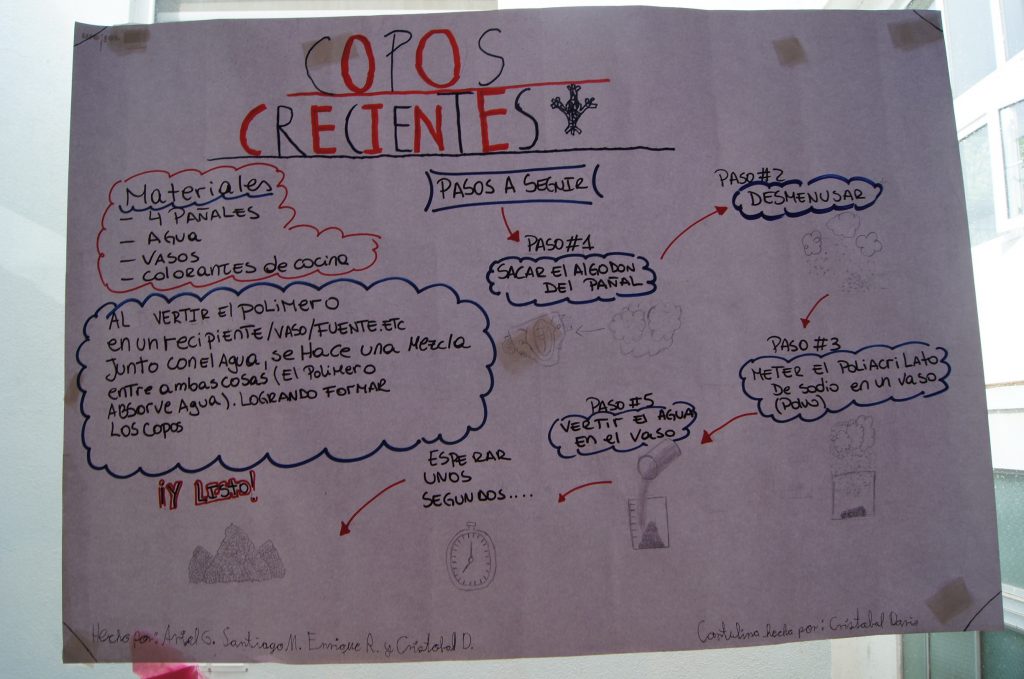 COPOS
CRECIENTES
Materiales
- 4 PAÑALES
- AGUA
- VASOS
- COLORANTES de COCINA
PASOS A SEGUIR
PASO #1
SACAR El AlGODON
DEl PAÑAL
PASO #2
DESMENUSAR
PASO #3
METER El POLiACRiLATO
De SODIO en un VASO
(Polvo)
PASO #5
VERTIR El AGUA
en el VASO
ESPERAR
UNOS
SEGUNDOS....
AL VERTIR El POLIMERO
en un recipiente/VASO/FUENTE.ETC
Junto con el Agua, se Hace una Mezcla
entre ambas cosas (El Polimero
ABSORVE Agua). LOGRANDO FORMAR
LOS COPOS
¡Y LISTO!
Hecho por: Ariel G. Santiago M. Enrique R. y Cristobal D.
Cartulina hecha por: Cristobal